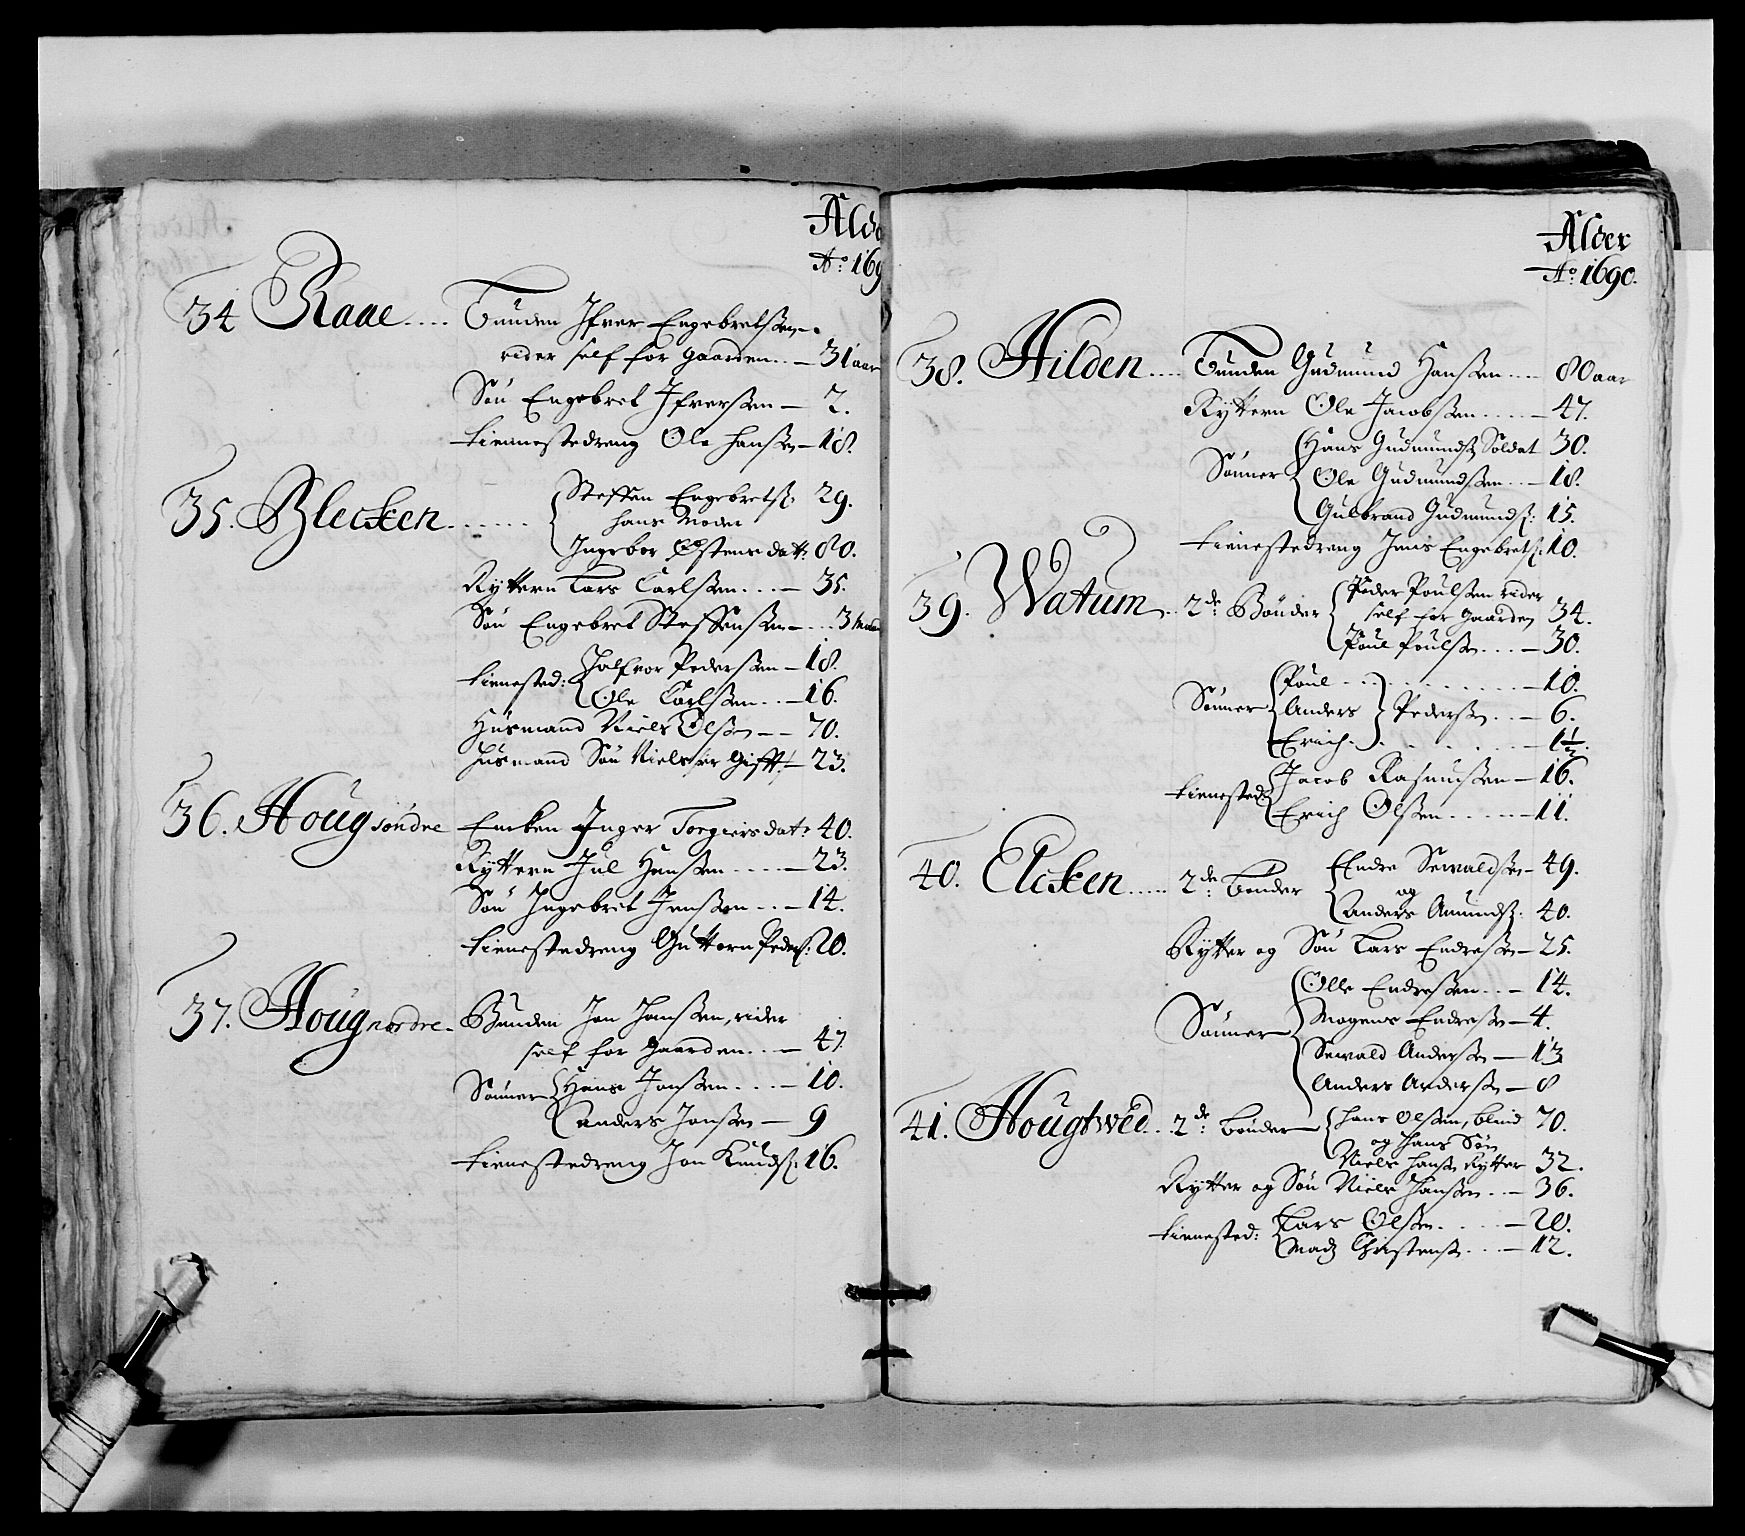 Alde
Ao: 169
34 Raae.... Bunden Ifver Engebretssen,
rider self for gaarden.. — 31 aar
Søn Engebret Ifverssen — 2.
tiennestedreng Ole Hanssen — 18.
35. Blecken......
Steffen Engebretss: 29.
hans Moder
Ingebor Østens datt: 80.
Ryttern Lars Carlssen... — 35.
Søn Engebret Steffenssen — .. 3
tienested: Halfvor Pederssen — 18.
Ole Carlssen.. — 16.
Husmand Niels Olssen — — 70.
Husmand Søn Niels er Gifft — 23.
36. Houg søndre Encken Inger Torgiersdat: 40.
Ryttern Jul Hanssen.... — 23.
Søn Ingebret Jenssen.. — 14.
tienestedreng Guttorm Peders: 20.
37. Houg nordre - Bunden Jon Hanssen, rider
self for Gaarden... — 47.
Sønner Hans Jonssen... — 10.
anders Jonssen — 9
tienestedreng Jon Knudss: 16.
Alder
Ao: 1690.
38. Hilden.... Bunden Gudmund Hanssen... 80 aar
Ryttern Ole Jacobssen.... — 47.
Sønner Hans Gudmundss Soldat 30.
Ole Gudmundssen.. — 18.
Gulbrand Gudmundss: 15.
tienestedreng Jens Engebretss: 10.
39. Watum.. 2de: Bønder Peder Poulssen rider
self for Gaarden 34.
Poul Poulssen... — 30.
Sønner Poul............ — 10.
Anders Pederssen.. — 6.
Erich........ — 1½.
tienested: Jacob Rasmussen — 16.
Erich Olssen..... — 11.
40. Elcken..... 2de: bonder Endre Sewaldssen — 49.
og
Anders Amundss: 40.
Rytter og Søn Lars Endressen — 25.
Sønner Olle Endressen.. — 14.
Mogens Endressen — 4.
Sewald Anderssen — 13
Anders Anderssen — 8
41. Hougtwed... 2de: bonder — Hans Olssen, blind 70.
og Hans Søn
Niels Hanss Rytter 32.
Rytter og Søn Niels Hanssen.. — 36.
tienested: Lars Olssen.... — 20.
Madz Christenss... — 12.